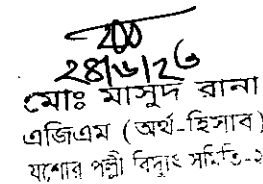 ২৪/৬/২৫
মোঃ মাসুদ রানা
এজিএম (অর্থ-হিসাব)
যশোর পল্লী বিদ্যুৎ সমিতি-২